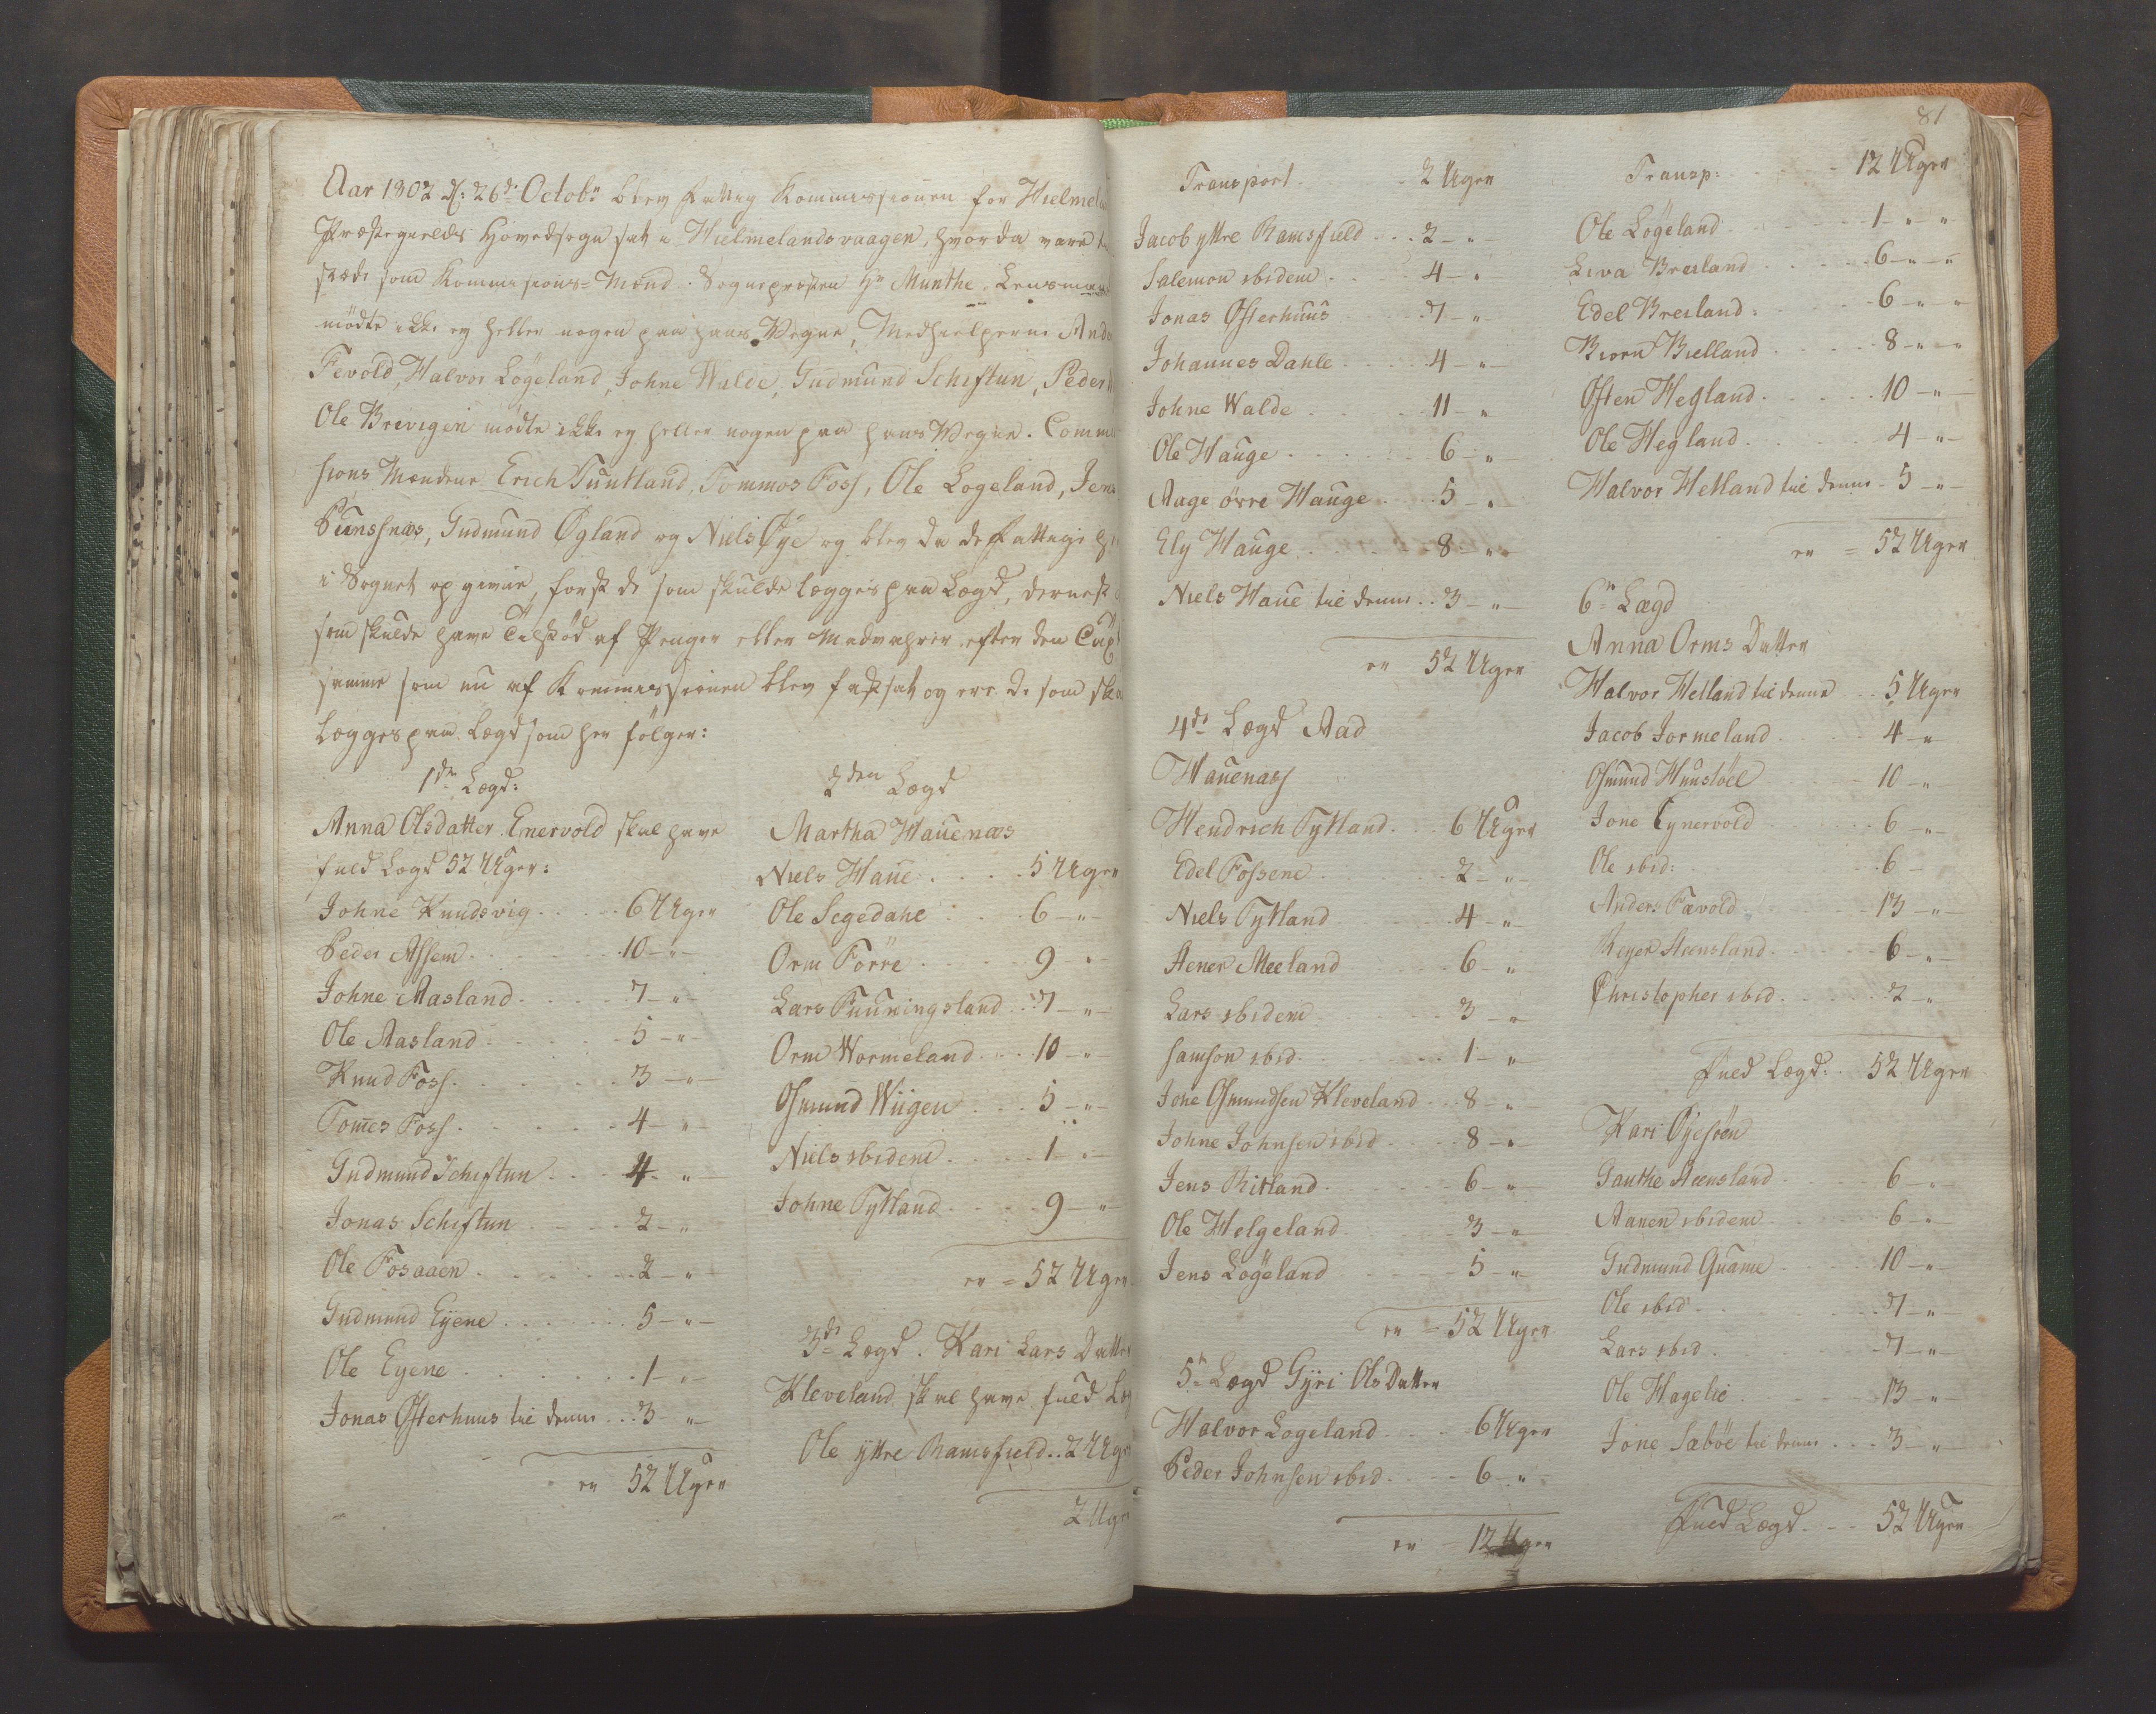 Aar 1802 d: 26de Octobr blev Fattig Kommissionen for Hielmela
Præstegields Hovedsogn sat i Hielmelandsvaagen, hvor da vare
stæde som Kommissions-Mænd. Sognepræsten Hr Munthe. Lensman
mödte ikke ey heller nogen paa hans Vegne, Medhielperne And
Fevold, Halvor Lögeland, Johne Walde, Gudmund Schiftun, Peder
Ole Brevigen mödte ikke ey heller nogen paa hans Vegne. Commi
sions Mændene Erich Tuntland, Tommos Foss, Ole Logeland, Jens
Puntsnæs, Gudmund Øgland og Niels Øye og blev da de Fattige
i Sognet opgivne, först de som skulde lægges paa Lægd, dernest
som skulde have Tilskod af Penger eller Madvahrer efter den
samme som nu af Kommissionen blev fastsat og ere de som ska
Lægges paa Lægd som her fölger:
1de Lægd:
Anna Olsdatter Enervold skal have
fuld Lægd 52 Uger:
Johne Knudsvig . . 6 Uger
Peder Assem . . 10 - "
Johne Aasland . . 7 - "
Ole Aasland . . 5 - "
Knud Foss . . 3 - "
Tom̄es Foss . . 4 - "
Gudmund Schiftun . . 4 - "
Jonas Schiftun . . 2 - "
Ole Fosaaen . . 2 - "
Gudmund Eyene . . 5 - "
Ole Eyene . . 1 - "
Jonas Østerhuus til denne . . 3 - "
er 52 Uger
2den Lægd
Martha Hauenæs
Niels Haue . . 5 Uger
Ole Segedahl . . 6 - "
Orm Förre . . 9 - "
Lars Funningsland . . 7 - "
Orm Wormeland . . 10 - "
Osmund Wiigen . . 5 - "
Niels ibidem . . 1 - "
Johne Tytland . . 9 - "
er = 52 Uger
3de Lægd. Kari Lars Datter
Kleveland skal have fuld Læg
Ole yttre Ramsfield . . 2 Uge
2 Uger
81
Transport . . 2 Uger
Jacob yttre Ramsfield . . 2 - "
Salemon ibidem . . 4 - "
Jonas Østerhuus . . 7 - "
Johannes Dahle . . 4 - "
Johne Walde . . 11 - "
Ole Hauge . . 6 - "
Aage övre Hauge . . 5 - "
Ely Hauge . . 8 - "
Niels Haue til denne . . 3 - "
er 52 Uger
4de Lægd Aad
Hauenæs
Hendrich Tytland . . 6 Uger
Edel Fossene . . 2 - "
Niels Tytland . . 4 - "
Aener Meeland . . 6 - "
Lars ibidem . . 3 - "
Samson ibid . . 1 - "
Jone Osmundsen Kleveland . . 8 - "
Johne Johnsen ibid . . 8 - "
Jens Ritland . . 6 - "
Ole Helgeland . . 3 - "
Jens Lögeland . . 5 - "
er - 52 Uger
5te Lægd Gÿri Ols Datter
Halvor Logeland . . 6 Uger
Peder Johnsen ibid . . 6 - "
er 12 Uger
Transp: . . 12 Uger
Ole Lögeland . . 1 - "
Liva Breiland . . 6 - "
Edel Breiland . . 6 - "
Biorn Bielland . . 8 - "
Østen Hegland . . 10 - "
Ole Hegland . . 4 - "
Halvor Hetland til denne . . 5 - "
er = 52 Uger
6te Lægd
Anna Orms Datter
Halvor Hetland til denne . . 5 Uger
Jacob Jormeland . . 4 - "
Osmund Huustöel . . 10 - "
Jone Eynervold . . 6 - "
Ole ibid: . . 6 -
Anders Fævold . . 13 - "
Reyer Steensland . . 6 - "
Christopher ibid . . 2 - "
fuld Lægd: . 52 Uger
Kari Øyesöen
Gauthe Steensland . . 6 - "
Aanen ibidem . . 6 - "
Gudmund Quame . . 10 - "
Ole ibid . . 7 - "
Lars ibid . . 7 - "
Ole Hagelie . . 13 - "
Jone Sæböe til denne . . 3 - "
fuld Lægd . . 52 Uger